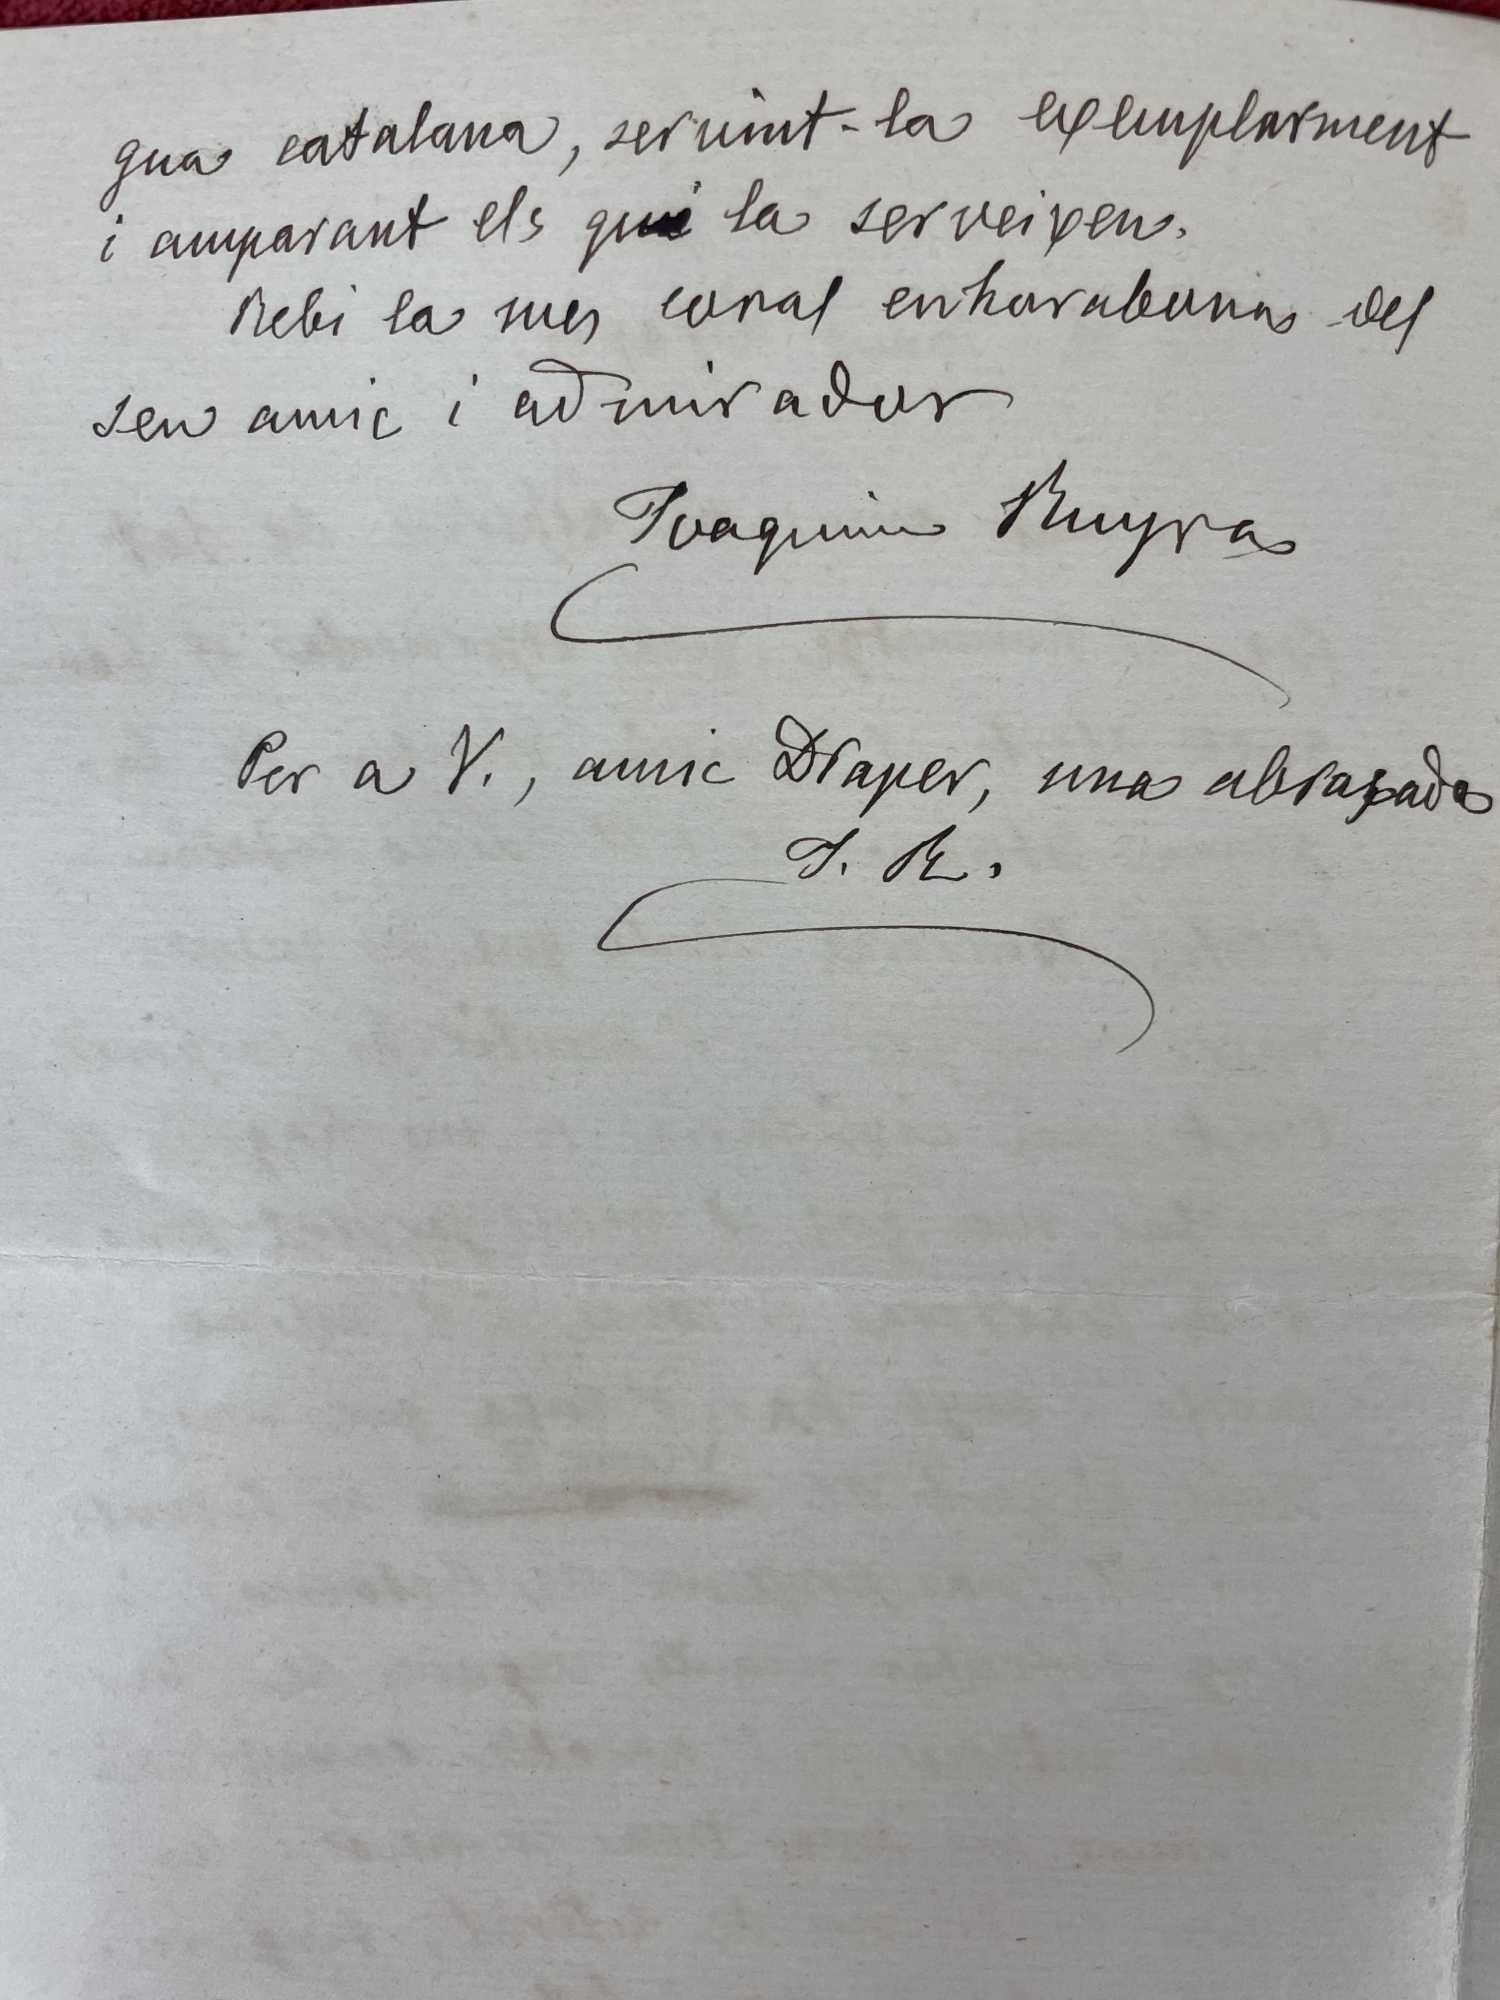 gua catalana, servint-la exemplarment
i amparant els qui la serveixen.
Rebi la mes coral enhorabona del
seu amic i admirador
Joaquim Ruyra
Per a V., amic Draper, una abraçada
J. R.